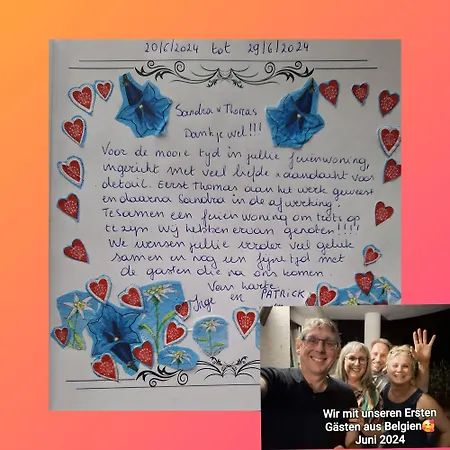 20/6/2024 tot 29/6/2024
Sandra & Thomas
Dank je wel!!!
Voor de mooie tijd in jullie ferienwoning,
ingericht met veel liefde & aandacht voor
detail. Eerst Thomas aan het werk geweest
en daarna Sandra in de afwerking.
Tesamen een ferienwoning om trots op
te zijn. Wij hebben ervan genoten!!!!
We wensen jullie verder veel geluk
samen en nog een fijne tijd met
de gasten die na ons komen.
Van harte
Inge en PATRICK
Wir mit unseren Ersten
Gästen aus Belgien🥰
Juni 2024